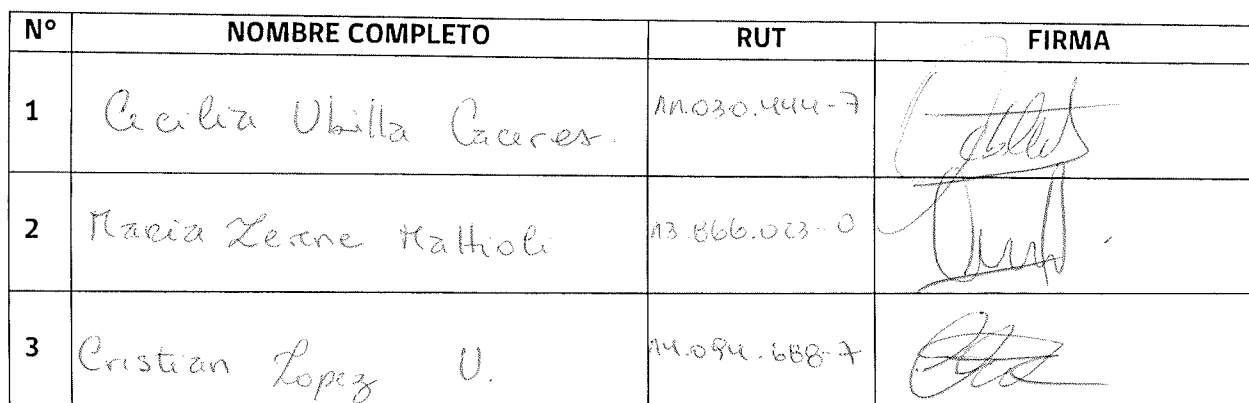 Nº NOMBRE COMPLETO RUT FIRMA
1 Cecilia Ubilla Caceres. 11.030.444-7
2 Maria Zerene Mattioli 13.866.023-0
3 Cristian Lopez U. 14.094.688-7